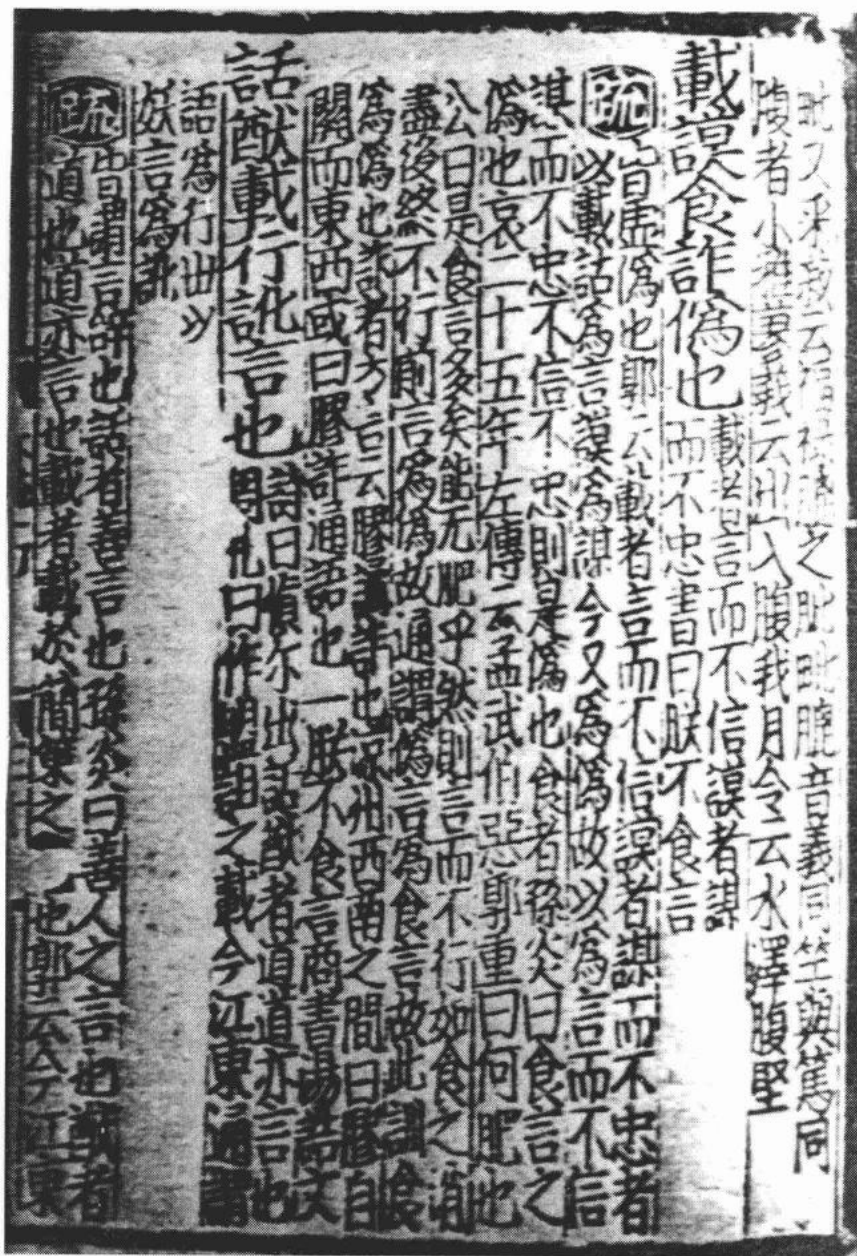 毗又采菽云福祿膍之肶毗膍音義同竺與篤同
腹者小雅蓼莪云出入腹我月令云水澤腹堅
載謨食詐僞也載者言而不信謨者謀
而不忠書曰朕不食言
疏皆虛僞也郭云載者言而不信謨者謀而不忠者
以載詁爲言謨爲謀今又爲僞故以爲言而不信
謀而不忠不信不忠則是僞也食者孫炎曰食言之
僞也哀二十五年左傳云孟武伯惡郭重曰何肥也
公曰是食言多矣能无肥乎然則言而不行如食之消
盡後終不行則言爲僞故通謂僞言爲食言故此訓食
爲僞也詐者方言云膠譎詐也涼州西南之間曰膠自
關而東西或曰膠詐通語也一朕不食言商書湯誓文
話猷載行訛言也詩曰愼尔出話猷者道道亦言也
周禮曰作盟詛之載今江東通謂
語爲行世以
妖言爲訛
疏皆謂言辭也話者善言也孫炎曰善人之言也猷者
道也道亦言也載者載於簡策之 也郭云今江東